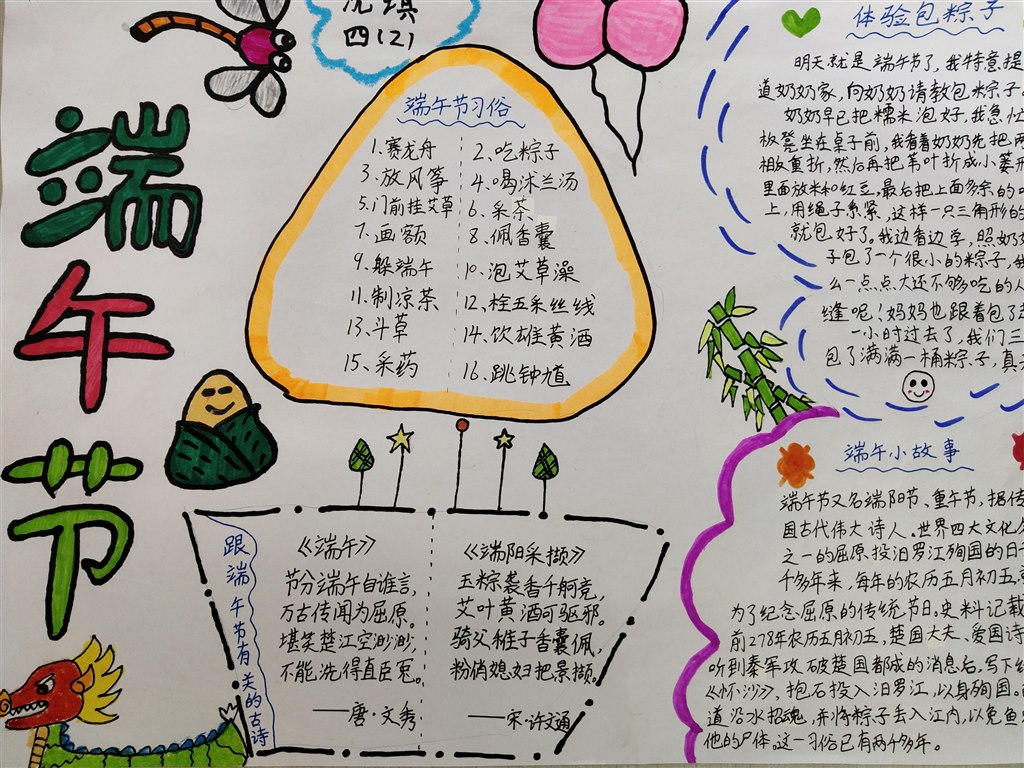 端午节
琪
四(2)
端午节习俗
1、赛龙舟 2、吃粽子
3、放风筝 4、喝沐兰汤
5、门前挂艾草 6、采茶
7、画额 8、佩香囊
9、躲端午 10、泡艾草澡
11、制凉茶 12、栓五采丝线
13、斗草 14、饮雄黄酒
15、采药 16、跳钟馗
跟端午节有关的古诗
《端午》
节分端午自谁言,
万古传闻为屈原。
堪笑楚江空渺渺,
不能洗得直臣冤。
——唐·文秀
《端阳采撷》
玉粽袭香千舸竞,
艾叶黄酒可驱邪。
骑父稚子香囊佩,
粉俏媳妇把景撷。
——宋·许文通
体验包粽子
明天就是端午节了,我特意提
道奶奶家,向奶奶请教包粽子。
奶奶早已把糯米泡好,我急忙
板凳坐在桌子前,我看着奶奶先把两
相板重折,然后再把苇叶折成小篓形
里面放米和红豆,最后把上面多余的叶
上,用绳子系紧,这样一只三角形的
就包好了。我边看边学,照奶奶
子包了一个很小的粽子,我
么一点点大还不够吃的人
缝呢!妈妈也跟着包了起
一小时过去了,我们三
包了满满一桶粽子,真
端午小故事
端午节又名端阳节、重午节,据传
国古代伟大诗人。世界四大文化名
之一的屈原投汨罗江殉国的日
千多年来,每年的农历五月初五
为了纪念屈原的传统节日,史料记载
前278年农历五月初五,楚国大夫、爱国诗
听到秦军攻破楚国都成的消息后,写下绝
《怀沙》,抱石投入汨罗江,以身殉国。
道沿水招魂,并将粽子丢入江内,以免鱼
他的尸体。这一习俗已有两千多年。